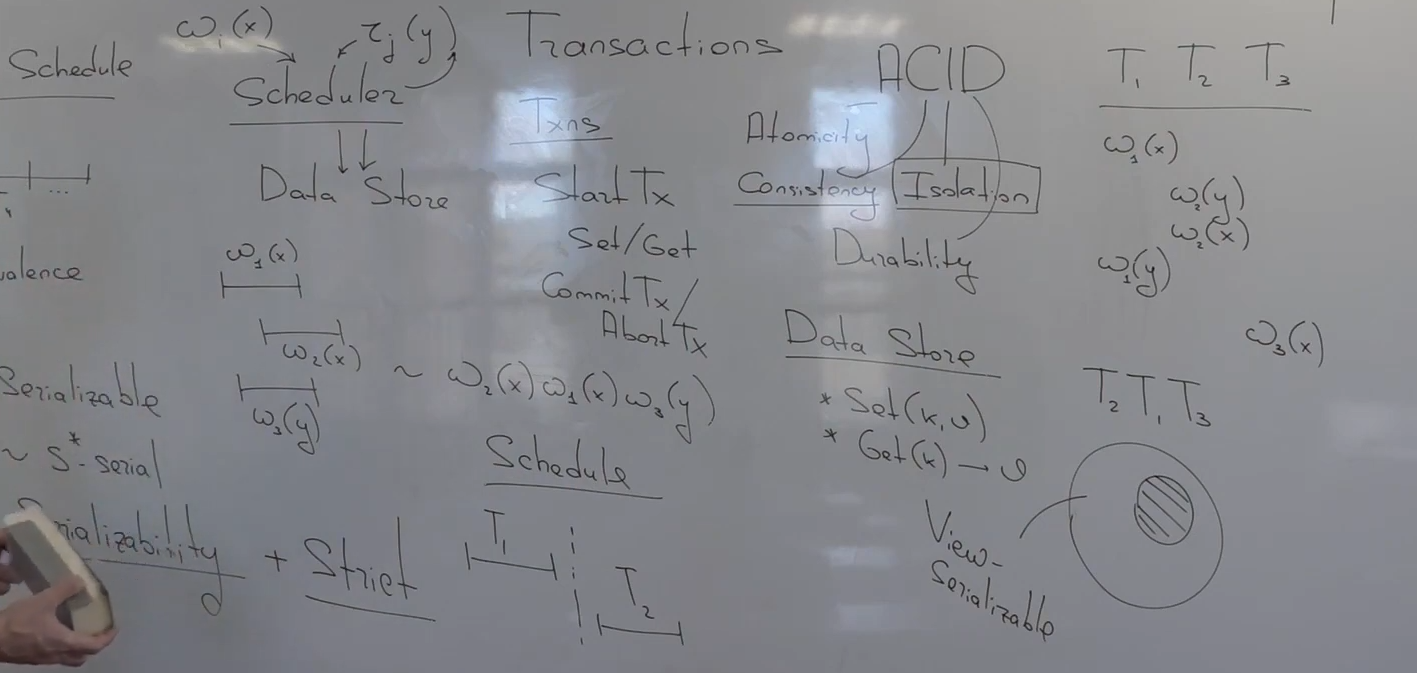 Schedule
...
valence
Serializable
~ S* - serial
Serializability + Strict
ω_i(x) τ_j(y)
Scheduler
Data Store
ω₁(x)
ω₂(x)
ω₃(y)
~ ω₂(x) ω₁(x) ω₃(y)
Transactions
Txns
Start Tx
Set/Get
Commit Tx/
Abort Tx
Schedule
T₁
T₂
ACID
Atomicity
Consistency Isolation
Durability
Data Store
* Set(k,v)
* Get(k) → v
View-
Serializable
T₁ T₂ T₃
ω₁(x)
ω₂(y)
ω₂(x)
ω₁(y)
ω₃(x)
T₂ T₁ T₃